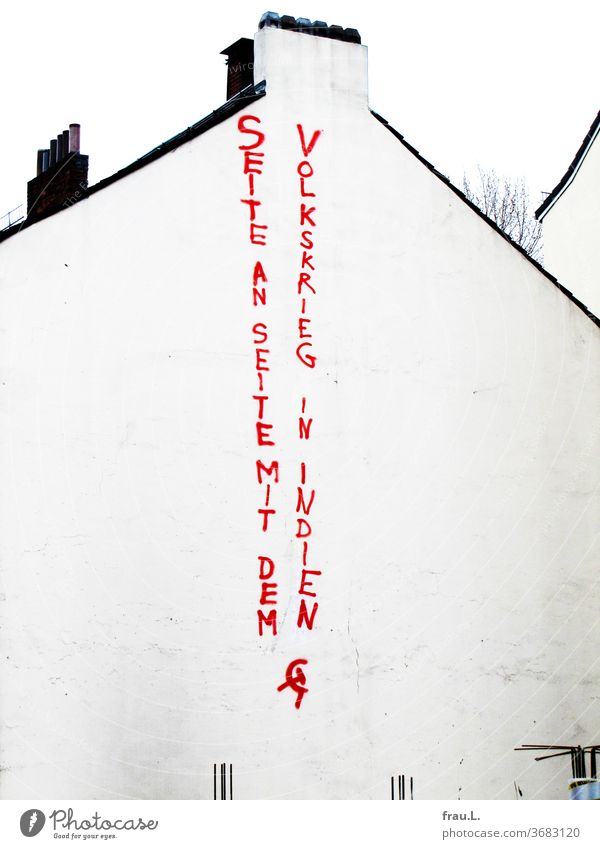 SEITE AN SEITE MIT DEM
VOLKSKRIEG IN INDIEN
PHOTOCASE
Good for your eyes.
frau.L.
3683120